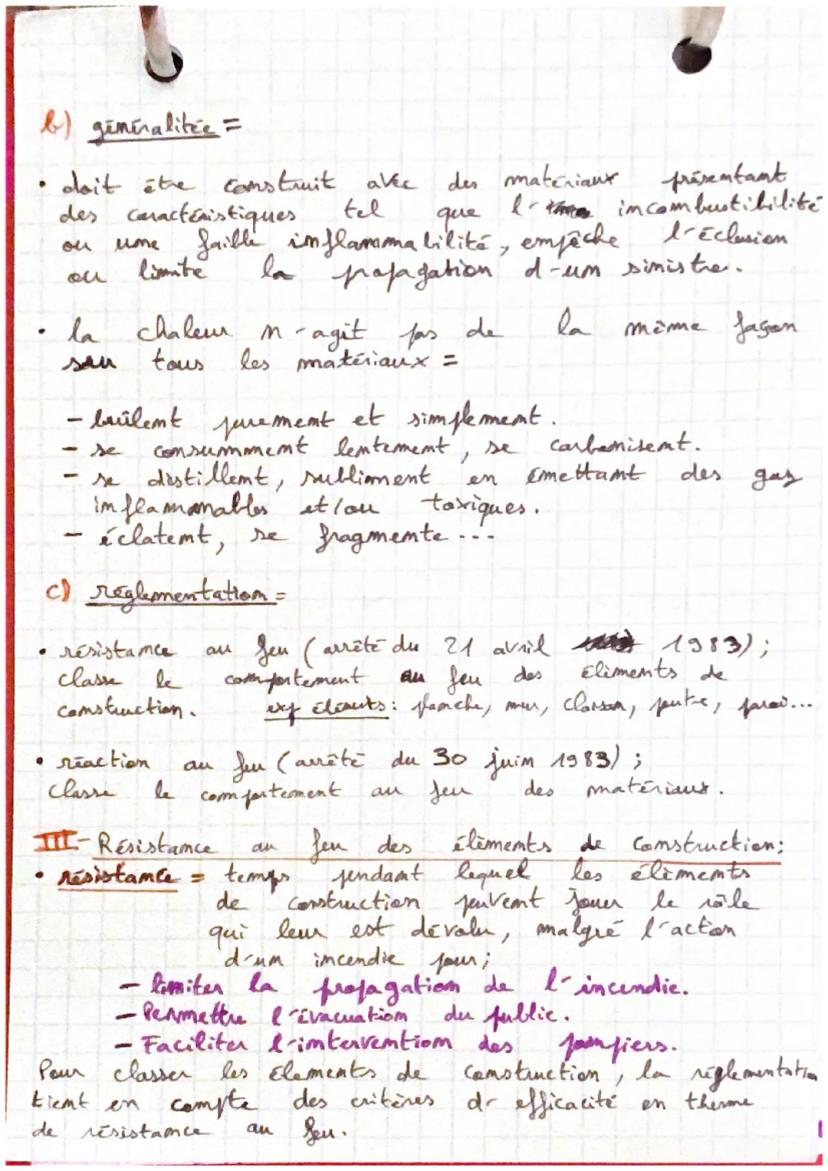 b) généralitée =
• doit être construit avec des matériaux présentant
des caractéristiques tel que l' incombustibilité
ou une faible inflammabilité, empêche l'éclusion
ou limite la propagation d'un sinistre.
• la chaleur n'agit pas de la même façon
sur tous les matériaux =
- brûlent purement et simplement.
- se consumment lentement, se carbonisent.
- se distillent, subliment en émettant des gaz
inflammables et/ou toxiques.
- éclatent, se fragmente ...
c) réglementation =
• résistance au feu (arrêté du 21 avril 1983);
classe le comportement au feu des éléments de
construction. exp éléments: planche, mur, cloison, poutre, paroi...
• réaction au feu (arrêté du 30 juin 1983);
classe le comportement au feu des matériaux.
III- Résistance au feu des éléments de construction:
• résistance = temps pendant lequel les éléments
de construction peuvent jouer le rôle
qui leur est dévolu, malgré l'action
d'un incendie pour;
- limiter la propagation de l'incendie.
- Permettre l'évacuation du public.
- Faciliter l'intervention des pompiers.
Pour classer les éléments de construction, la réglementation
tient en compte des critères d'efficacité en therme
de résistance au feu.